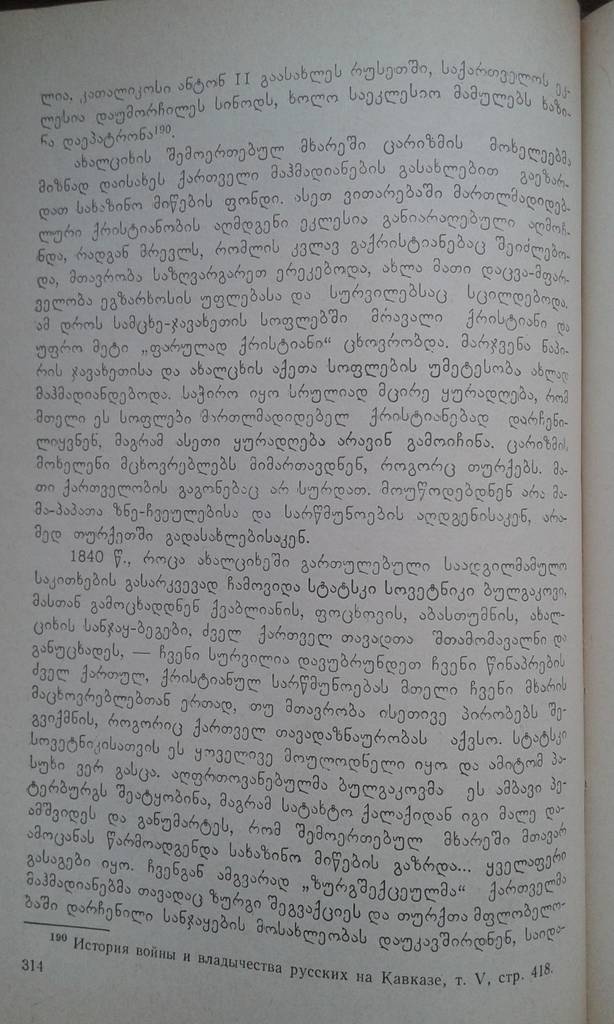 ლია. კათალიკოსი ანტონ II გაასახლეს რუსეთში, საქართველოს ეკ-
ლესია დაუმორჩილეს სინოდს, ხოლო საეკლესიო მამულებს ხაზი-
ნა დაეპატრონა¹⁹⁰.
ახალციხის შემოერთებულ მხარეში ცარიზმის მოხელეებმა
მიზნად დაისახეს ქართველი მაჰმადიანების გასახლებით გაეზარ-
დათ სახაზინო მიწების ფონდი. ასეთ ვითარებაში მართლმადიდებ-
ლური ქრისტიანობის აღმდგენი ეკლესია განიარაღებული აღმოჩ-
ნდა, რადგან მრევლს, რომლის კვლავ გაქრისტიანებაც შეიძლებო-
და, მთავრობა საზღვარგარეთ ერეკებოდა, ახლა მათი დაცვა-მფარ-
ველობა ეგზარხოსის უფლებასა და სურვილებსაც სცილდებოდა.
ამ დროს სამცხე-ჯავახეთის სოფლებში მრავალი ქრისტიანი და
უფრო მეტი „ფარულად ქრისტიანი“ ცხოვრობდა. მარჯვენა ნაპი-
რის ჯავახეთისა და ახალციხის აქეთა სოფლების უმეტესობა ახლად
მაჰმადიანდებოდა. საჭირო იყო სრულიად მცირე ყურადღება, რომ
მთელი ეს სოფლები მართლმადიდებელ ქრისტიანებად დარჩენი-
ლიყვნენ, მაგრამ ასეთი ყურადღება არავინ გამოიჩინა. ცარიზმის
მოხელენი მცხოვრებლებს მიმართავდნენ, როგორც თურქებს. მა-
თი ქართველობის გაგონებაც არ სურდათ. მოუწოდებდნენ არა მა-
მა-პაპათა ზნე-ჩვეულებისა და სარწმუნოების აღდგენისაკენ, არა-
მედ თურქეთში გადასახლებისაკენ.
1840 წ., როცა ახალციხეში გართულებული საადგილმამულო
საკითხების გასარკვევად ჩამოვიდა სტატსკი სოვეტნიკი ბულგაკოვი,
მასთან გამოცხადდნენ ქვაბლიანის, ფოცხოვის, აბასთუმნის, ახალ-
ციხის სანჯაყ-ბეგები, ძველ ქართველ თავადთა შთამომავალნი და
განუცხადეს, — ჩვენი სურვილია დავუბრუნდეთ ჩვენი წინაპრების
ძველ ქართულ, ქრისტიანულ სარწმუნოებას მთელი ჩვენი მხარის
მაცხოვრებლებთან ერთად, თუ მთავრობა ისეთივე პირობებს შე-
გვიქმნის, როგორიც ქართველ თავადაზნაურობას აქვსო. სტატსკი
სოვეტნიკისათვის ეს ყოველივე მოულოდნელი იყო და ამიტომ პა-
სუხი ვერ გასცა. აღფრთოვანებულმა ბულგაკოვმა ეს ამბავი პე-
ტერბურგს შეატყობინა, მაგრამ სატახტო ქალაქიდან იგი მალე და-
ამშვიდეს და განუმარტეს, რომ შემოერთებულ მხარეში მთავარ
ამოცანას წარმოადგენდა სახაზინო მიწების გაზრდა... ყველაფერი
გასაგები იყო. ჩვენგან ამგვარად „ზურგშექცეულმა“ ქართველმა
მაჰმადიანებმა თავადაც ზურგი შეგვაქციეს და თურქთა მფლობელო-
ბაში დარჩენილი სანჯაყების მოსახლეობას დაუკავშირდნენ, საიდა-
¹⁹⁰ История войны и владычества русских на Кавказе, т. V, стр. 418.
314